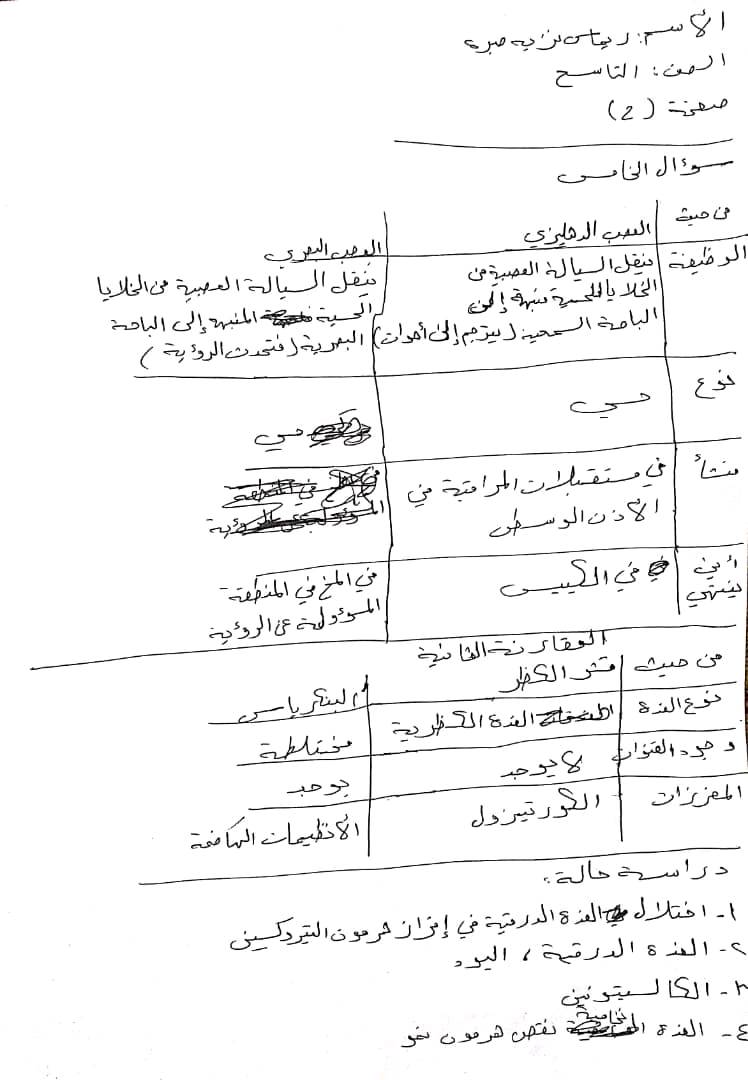 الأسم: ريماس نزيه صبره
الصف: التاسع
صفحة (2)
سؤال الخامس
من حيث العصب الدهليزي العصب البصري
الوظيفة تنقل السيالة العصبية من تنقل السيالة العصبية من الخلايا
الخلايا الحسية منبهة إلى الحسية المنبهة إلى الباحة
الباحة السمعية (يترجم إلى أصوات) البصرية (فتحدث الرؤية)
نوع حسي حسي
منشأ في مستقبلات المراقبة في
الأذن الوسطى
أين ينتهي في الكييس في المخ في المنطقة
المسؤولة عن الرؤية
المقارنة الثانية
من حيث قشر الكظر البنكرياس
نوع الغدة الغدة الكظرية مختلطة
وجود القنوات لا يوجد يوجد
المفرزات الكورتيزول الأنظيمات الهاضمة
دراسة حالة:
١- اختلال الغدة الدرقية في إفراز هرمون التيروكسين
٢- الغدة الدرقية، اليود
٣- الكالسيتونين
٤- الغدة النخامية نقص هرمون نمو